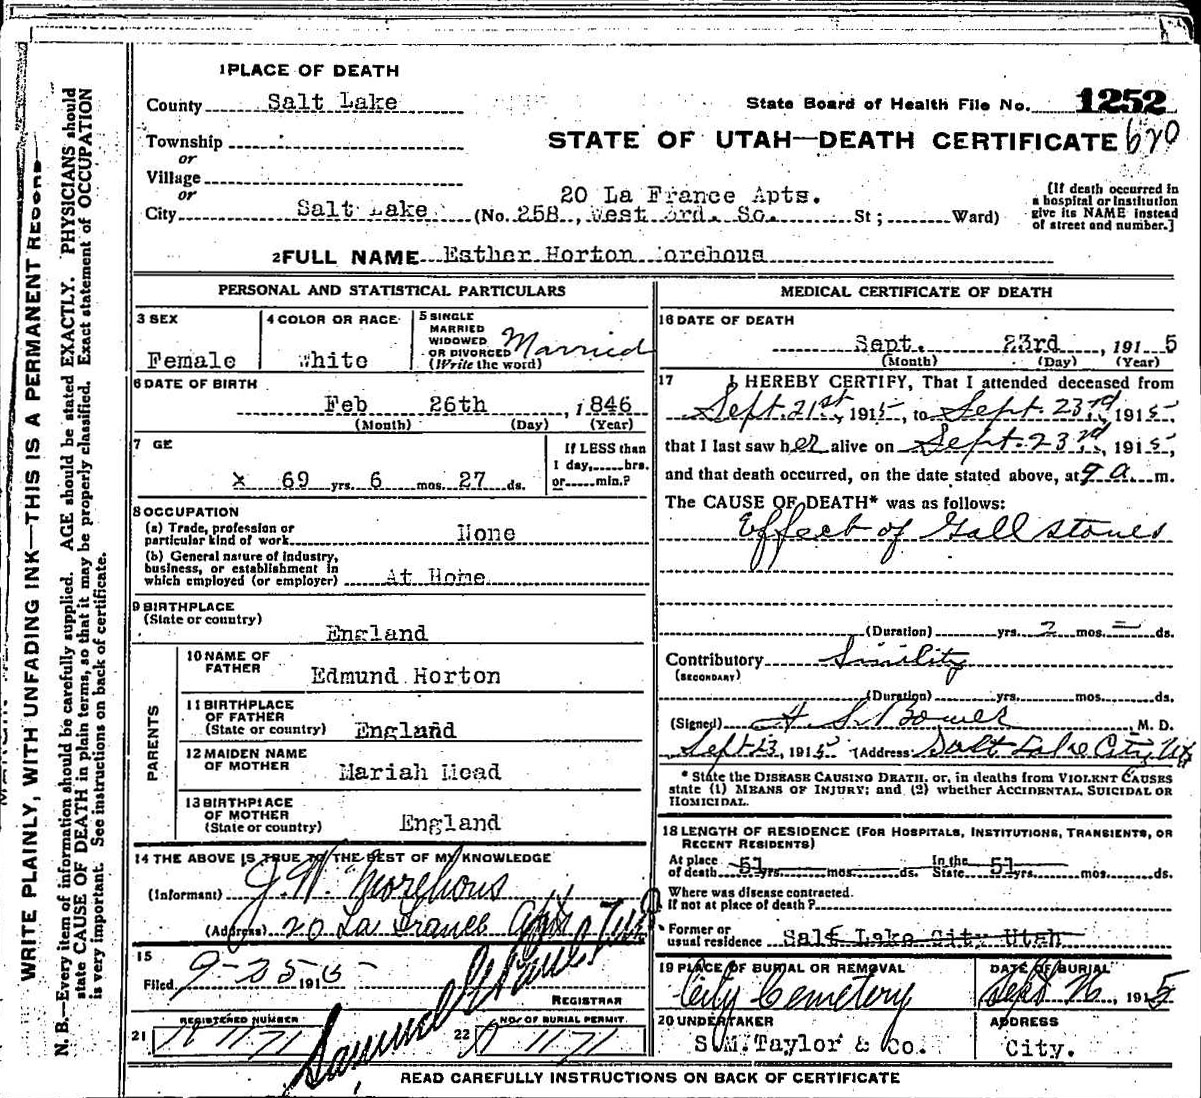 1 PLACE OF DEATH
County Salt Lake
State Board of Health File No. 1252
Township
or
STATE OF UTAH—DEATH CERTIFICATE 620
Village
or
20 La France Apts.
City Salt Lake (No. 258, West 3rd. So. St; Ward)
(If death occurred in
a hospital or institution
give its NAME instead
of street and number.]
2 FULL NAME Esther Horton orehous
PERSONAL AND STATISTICAL PARTICULARS
3 SEX
Female
4 COLOR OR RACE
White
5 SINGLE
MARRIED
WIDOWED
OR DIVORCED
(Write the word)
Married
6 DATE OF BIRTH
Feb 26th, 1846
(Month) (Day) (Year)
7 GE
x 69 yrs. 6 mos. 27 ds.
If LESS than
1 day, hrs.
or min.?
8 OCCUPATION
(a) Trade, profession or
particular kind of work None
(b) General nature of industry,
business, or establishment in
which employed (or employer) At Home
9 BIRTHPLACE
(State or country)
England
PARENTS
10 NAME OF
FATHER
Edmund Horton
11 BIRTHPLACE
OF FATHER
(State or country) England
12 MAIDEN NAME
OF MOTHER
Mariah Mead
13 BIRTHPLACE
OF MOTHER
(State or country) England
14 THE ABOVE IS TRUE TO THE BEST OF MY KNOWLEDGE
(Informant) J. W. Morehous
(Address) 20 La France Apts
15
Filed 9-25 1915
REGISTRAR
21 REGISTERED NUMBER
1171
22 NO. OF BURIAL PERMIT
1171
Samuel
MEDICAL CERTIFICATE OF DEATH
16 DATE OF DEATH
Sept. 23rd, 1915
(Month) (Day) (Year)
17 I HEREBY CERTIFY, That I attended deceased from
Sept. 21st, 1915, to Sept. 23rd, 1915,
that I last saw her alive on Sept. 23rd, 1915,
and that death occurred, on the date stated above, at 9 a. m.
The CAUSE OF DEATH* was as follows:
Effect of Gall stones
(Duration) yrs. 2 mos. = ds.
Contributory Sinility
(SECONDARY)
(Duration) yrs. mos. ds.
(Signed) H. S. Bower M. D.
Sept 23, 1915 (Address) Salt Lake City Ut
* State the DISEASE CAUSING DEATH, or, in deaths from VIOLENT CAUSES
state (1) MEANS OF INJURY; and (2) whether ACCIDENTAL, SUICIDAL OR
HOMICIDAL.
18 LENGTH OF RESIDENCE (FOR HOSPITALS, INSTITUTIONS, TRANSIENTS, OR
RECENT RESIDENTS)
At place
of death 51 yrs. mos. ds. In the
State 51 yrs. mos. ds.
Where was disease contracted.
If not at place of death?
Former or
usual residence Salt Lake City Utah
19 PLACE OF BURIAL OR REMOVAL
City Cemetery
DATE OF BURIAL
Sept 26, 1915
20 UNDERTAKER
S.M. Taylor & Co.
ADDRESS
City.
READ CAREFULLY INSTRUCTIONS ON BACK OF CERTIFICATE
WRITE PLAINLY, WITH UNFADING INK—THIS IS A PERMANENT RECORD
N. B.—Every item of information should be carefully supplied. AGE should be stated EXACTLY. PHYSICIANS should
state CAUSE OF DEATH in plain terms, so that it may be properly classified. Exact statement of OCCUPATION
is very important. See instructions on back of certificate.